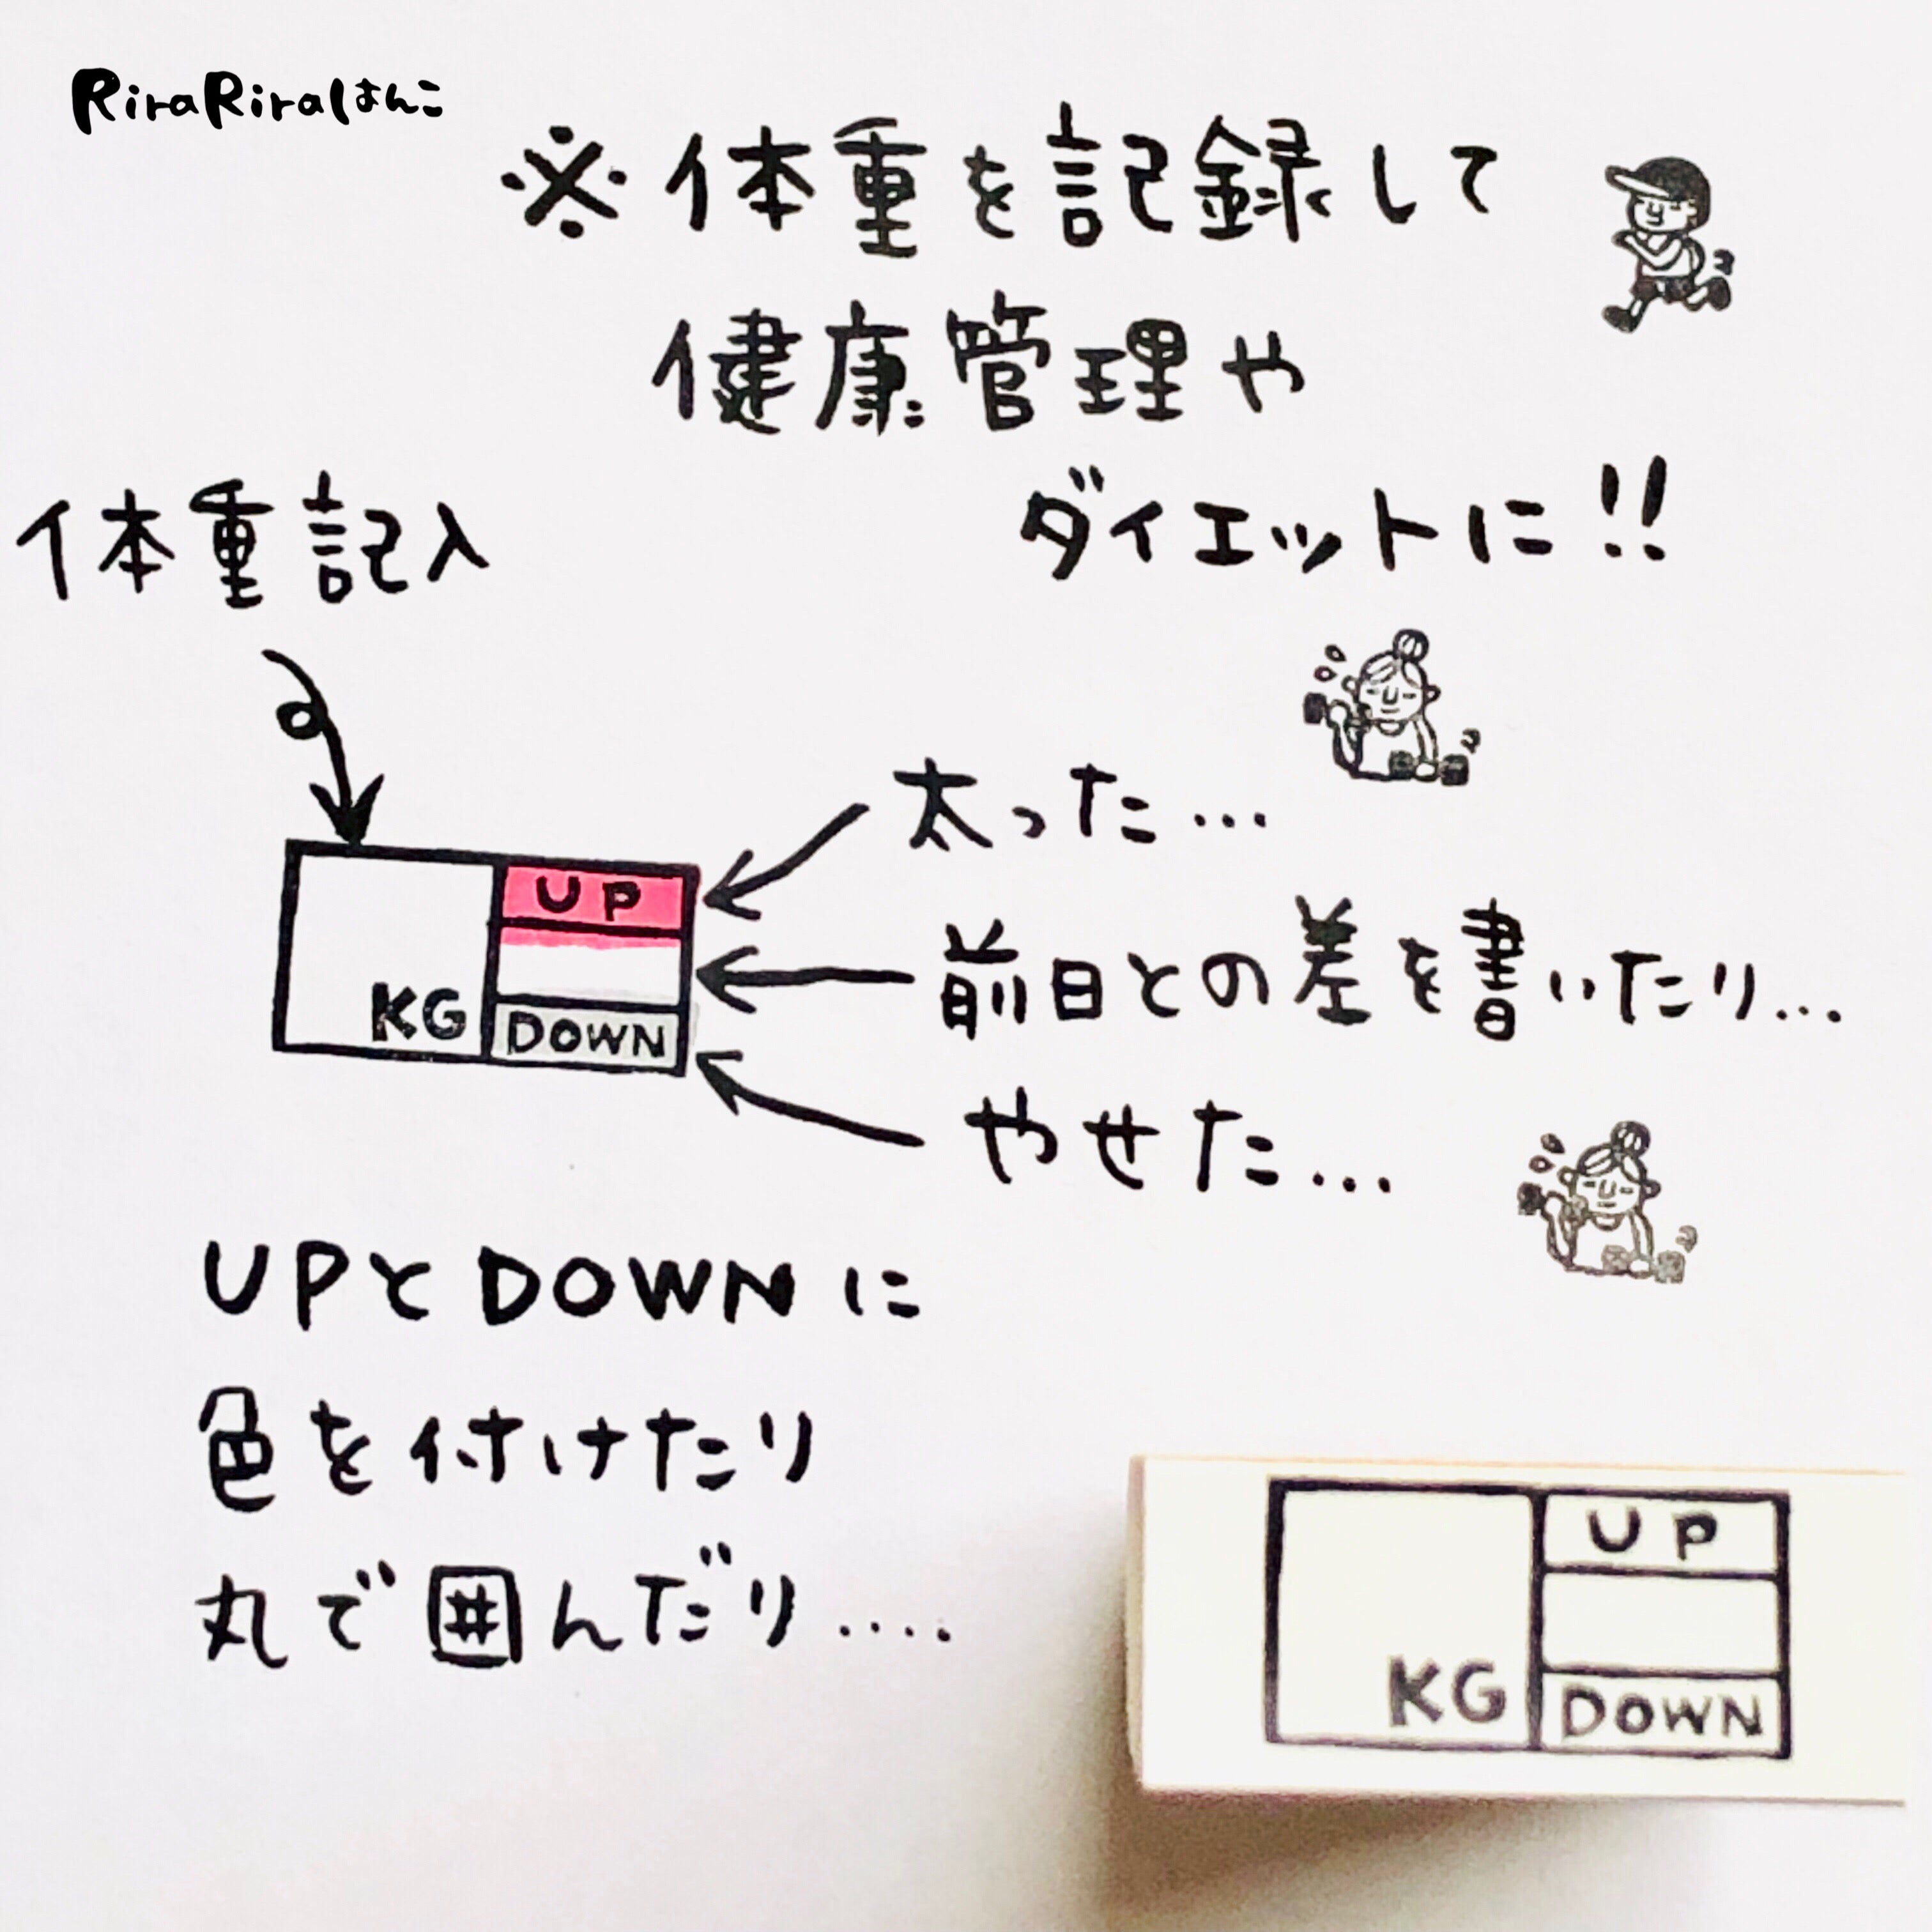 RiraRiraはんこ
※体重を記録して
健康管理や
ダイエットに!!
体重記入
太った...
UP
前日との差を書いたり...
KG
DOWN
やせた...
UPとDOWNに
色を付けたり
丸で囲んだり....
UP
KG
DOWN